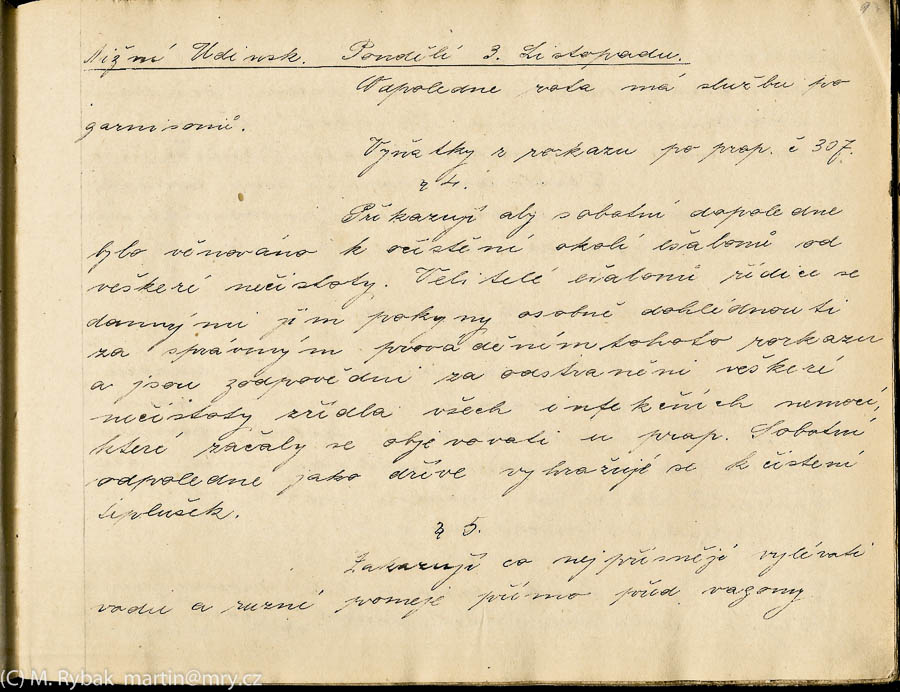 Nižní Udinsk. Pondělí 3. Listopadu.
Odpoledne rota má službu po
garnisoně.
Výňatky z rozkazu po prap. č 307.
§ 4.
Přikazují aby sobotní dopoledne
bylo věnováno k očistění okolí ešalonů od
veškeré nečistoty. Velitelé ešalonů řídice se
dannými jim pokyny osobně dohlédnouti
za správným prováděním tohoto rozkazu
a jsou zodpovědni za odstranění veškeré
nečistoty zřídla všech infekčních nemocí,
které začaly se objevovati u prap. Sobotní
odpoledne jako dříve vyhražuje se k čistení
těplušek.
§ 5.
Zakazují co nejpřísněji vylévati
vodu a ruzné pomeje přímo před vagony
(C) M. Rybak martin@mry.cz